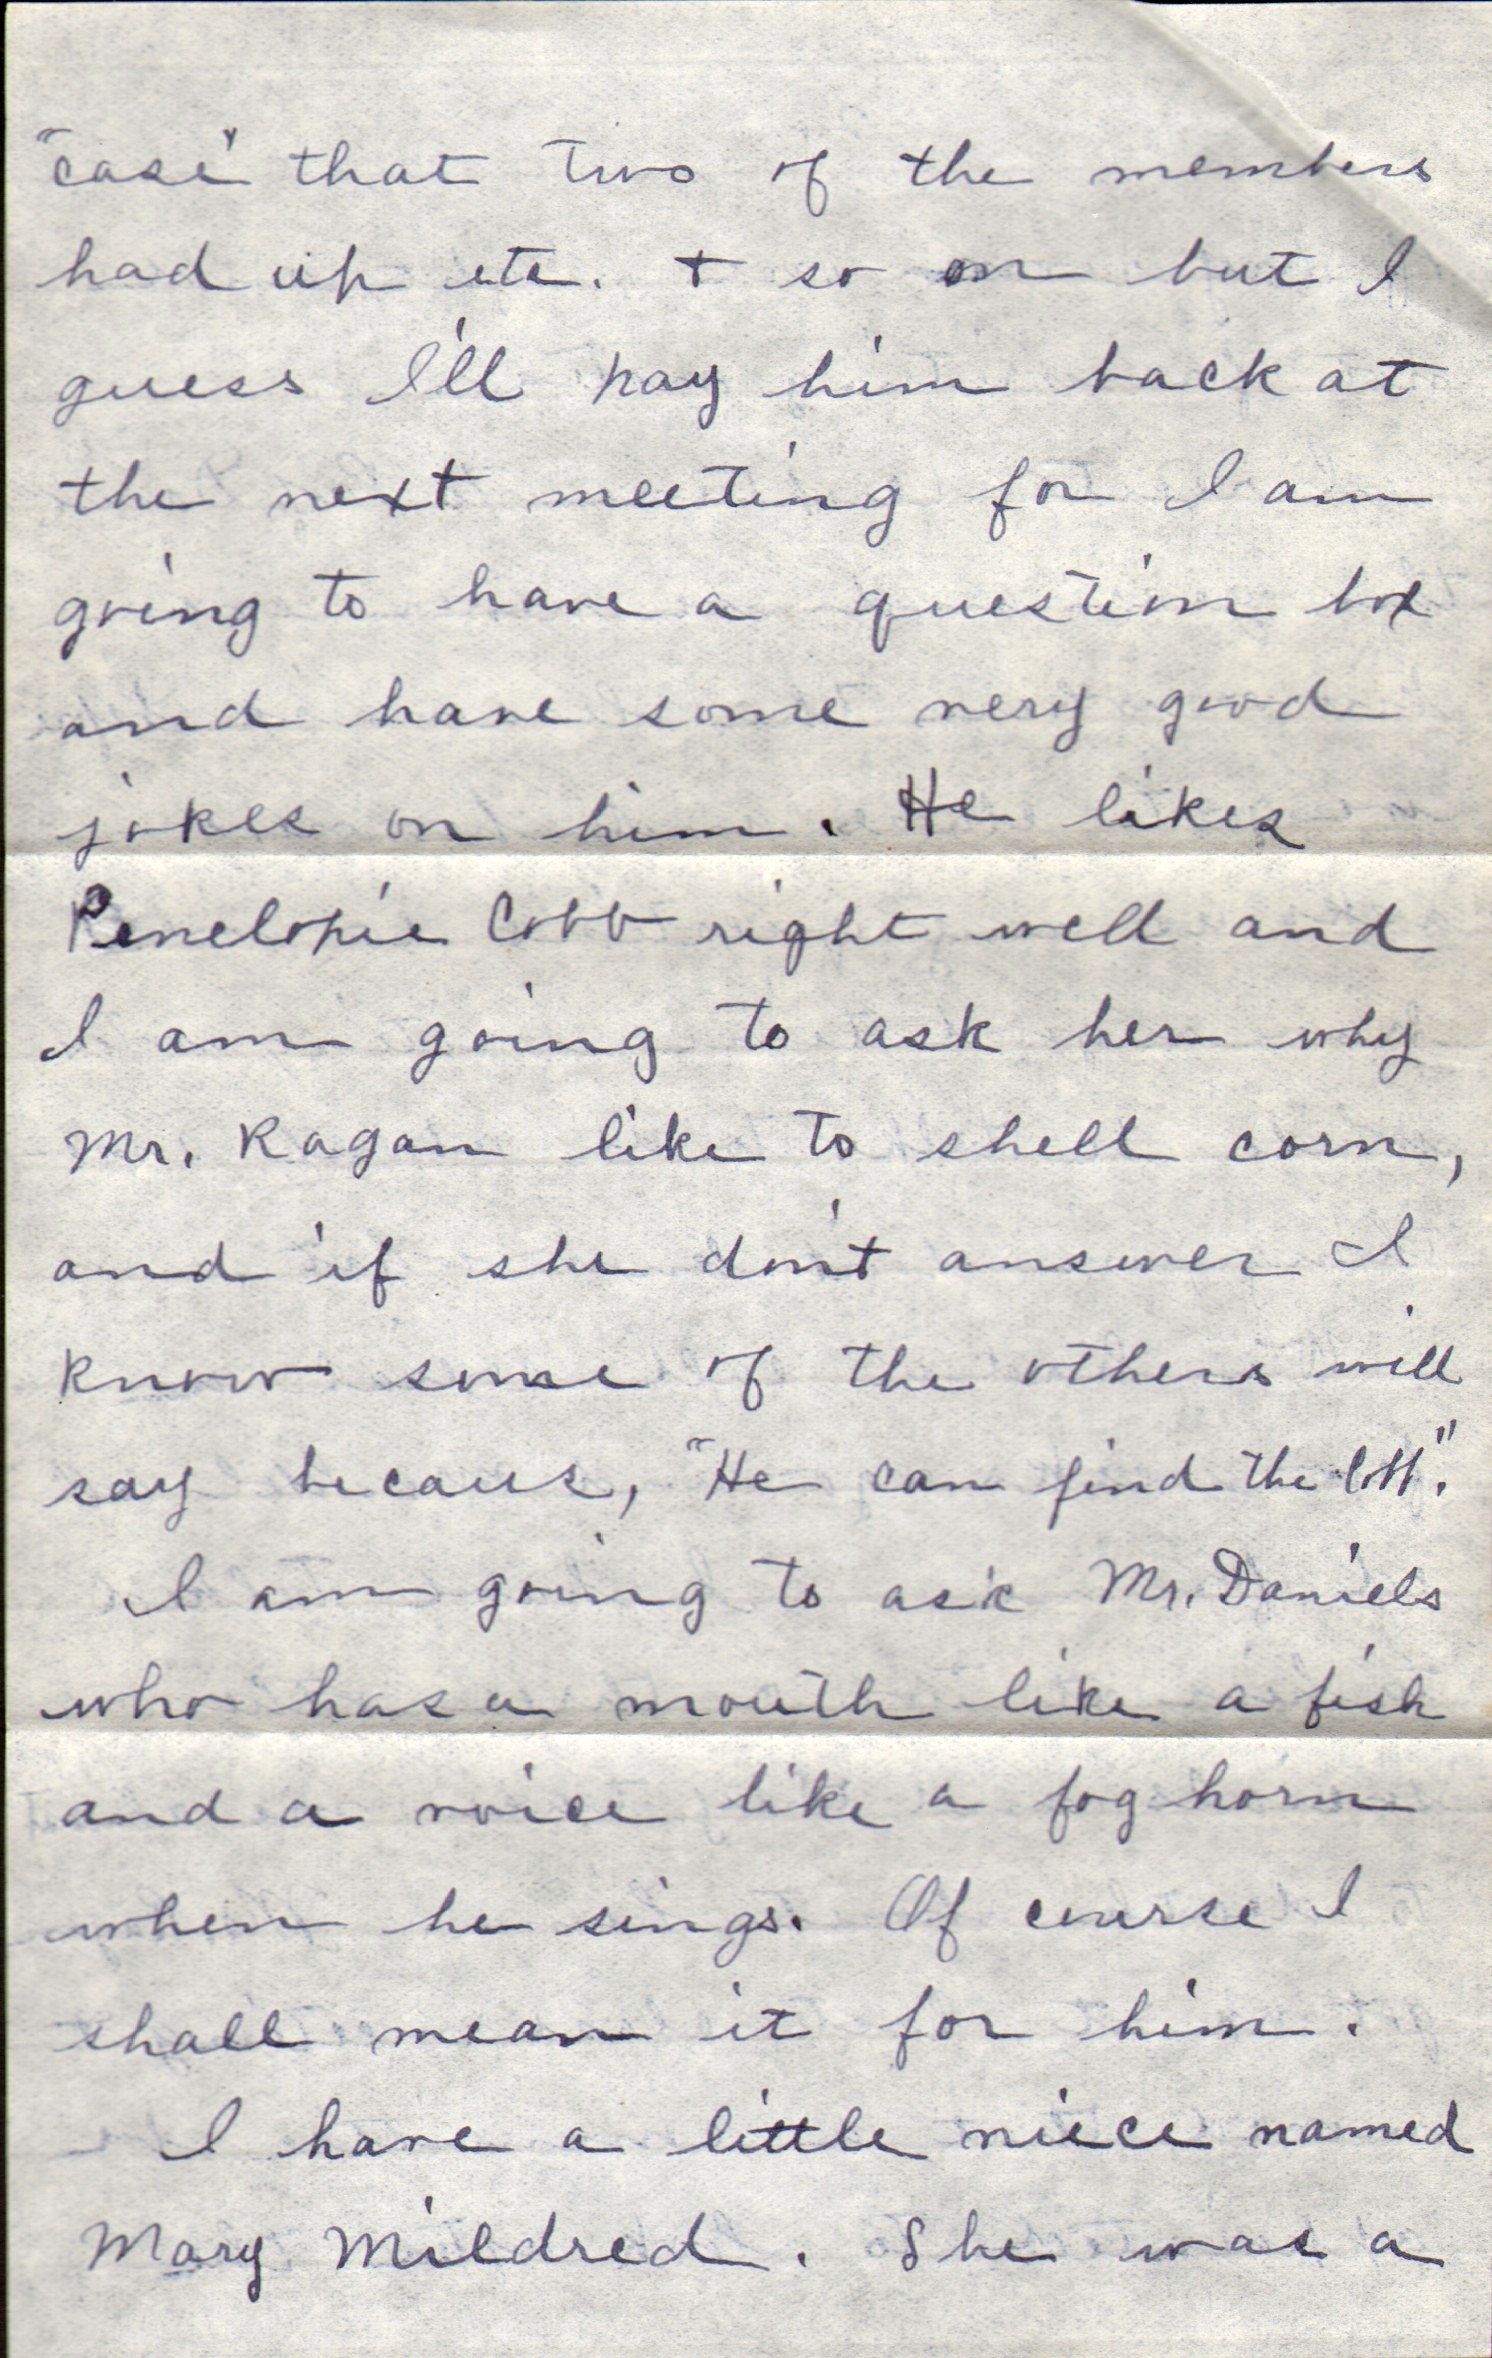 "case" that two of the members
had up etc. + so on but I
guess I'll pay him back at
the next meeting for I am
going to have a question box
and have some very good
jokes on him. He likes
Penelopie Cobb right well and
I am going to ask her why
Mr. Ragan like to shell corn,
and if she don't answer I
know some of the others will
say because, "He can find the Cobb".
I am going to ask Mr. Daniels
who has a mouth like a fish
and a voice like a fog horn
when he sings. Of course I
shall mean it for him.
I have a little niece named
Mary Mildred. She was a